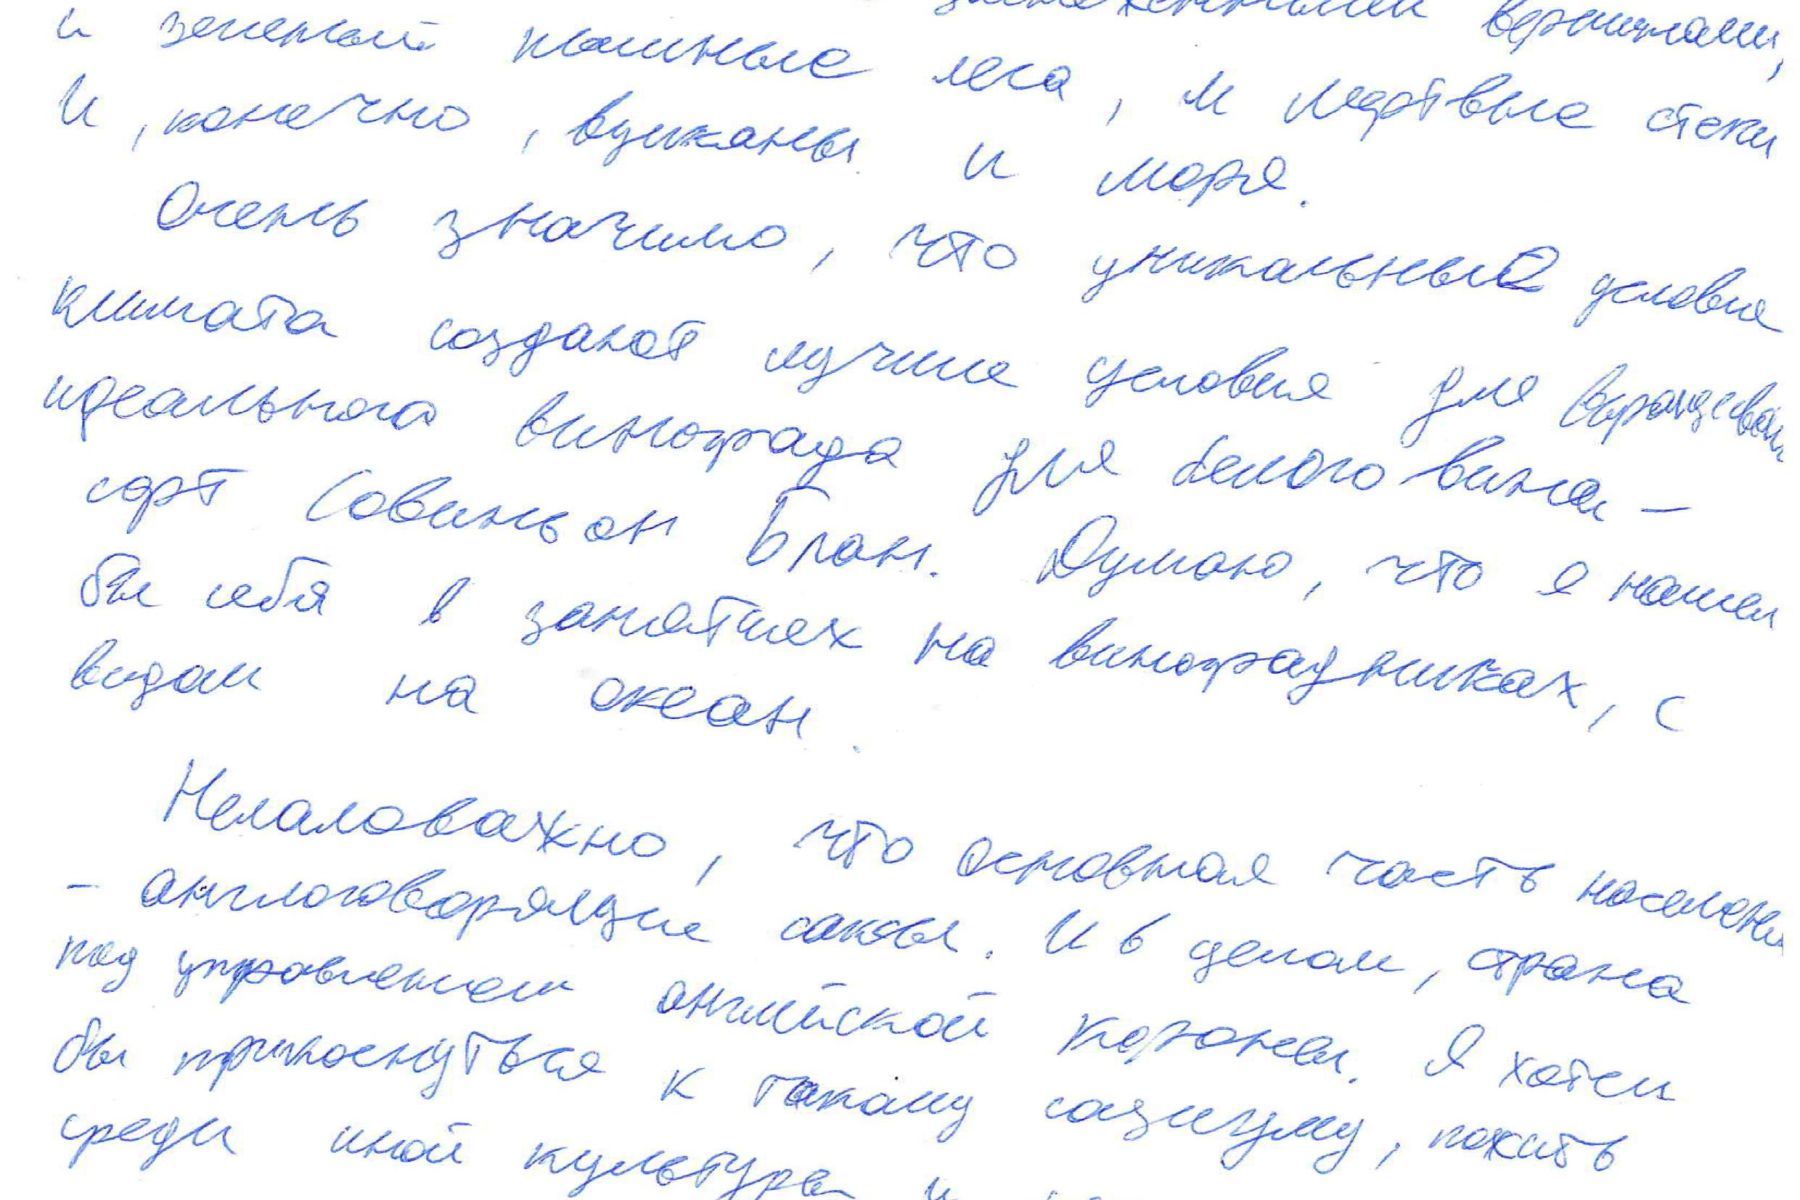 вершинами,
и зеленый пышные леса, и мертвые степи
И, конечно, вулканы и моря.
Очень значимо, что уникальные условия
климата создают лучшие условия для
идеального винограда для белого вина –
сорт Совиньон Блан. Думаю, что я нашел
бы себя в занятиях на виноградниках, с
видом на океан.
Немаловажно, что основная часть населени
– англоговорящие саксы. И в целом, страна
под управлением английской короны. Я хотел
бы прикоснуться к такому социуму, пожить
среди иной культуры